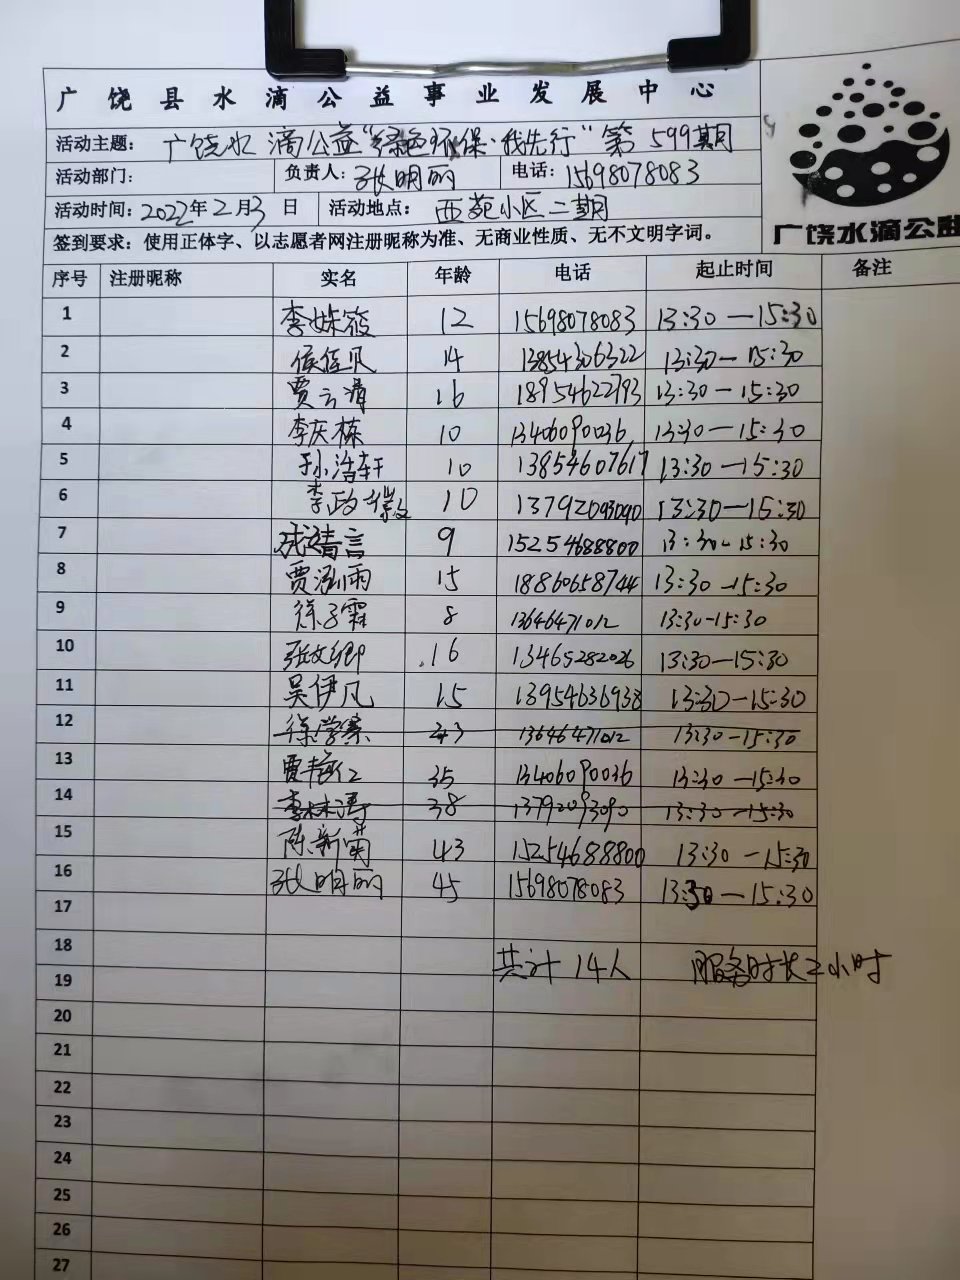 广饶县水滴公益事业发展中心
活动主题: 广饶水滴公益“绿色环保·我先行”第599期
活动部门: 负责人: 张明丽 电话: 15698078083
活动时间: 2022年2月3日 活动地点: 西苑小区二期
签到要求: 使用正体字、以志愿者网注册昵称为准、无商业性质、无不文明字词。
广饶水滴公益
序号 注册昵称 实名 年龄 电话 起止时间 备注
1 李姝筱 12 15698078083 13:30—15:30
2 侯佳贝 14 13854306322 13:30—15:30
3 贾云清 16 18954622793 13:30—15:30
4 李庆栋 10 13406090036 13:30—15:30
5 孙浩轩 10 13854607617 13:30—15:30
6 李政 10 13792093090 13:30—15:30
7 9 15254688800 13:30-15:30
8 贾泓雨 15 18860658744 13:30—15:30
9 徐子霖 8 13646471012 13:30-15:30
10 张文卿 16 13465282026 13:30—15:30
11 吴伊凡 15 13954636938 13:30—15:30
12 43 13646471012 13:30-15:30
13 35 13406090036 13:30—15:30
14 李林涛 38 13792093090 13:30—15:30
15 陈新菊 43 15254688800 13:30—15:30
16 张明丽 45 15698078083 13:30—15:30
17
18
共计14人 服务时长2小时
19
20
21
22
23
24
25
26
27